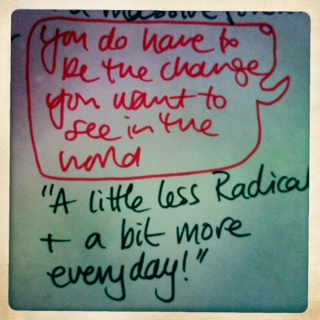 a massive
you do have to
be the change
you want to
see in the
world
"A little less Radical
+ a bit more
everyday!"